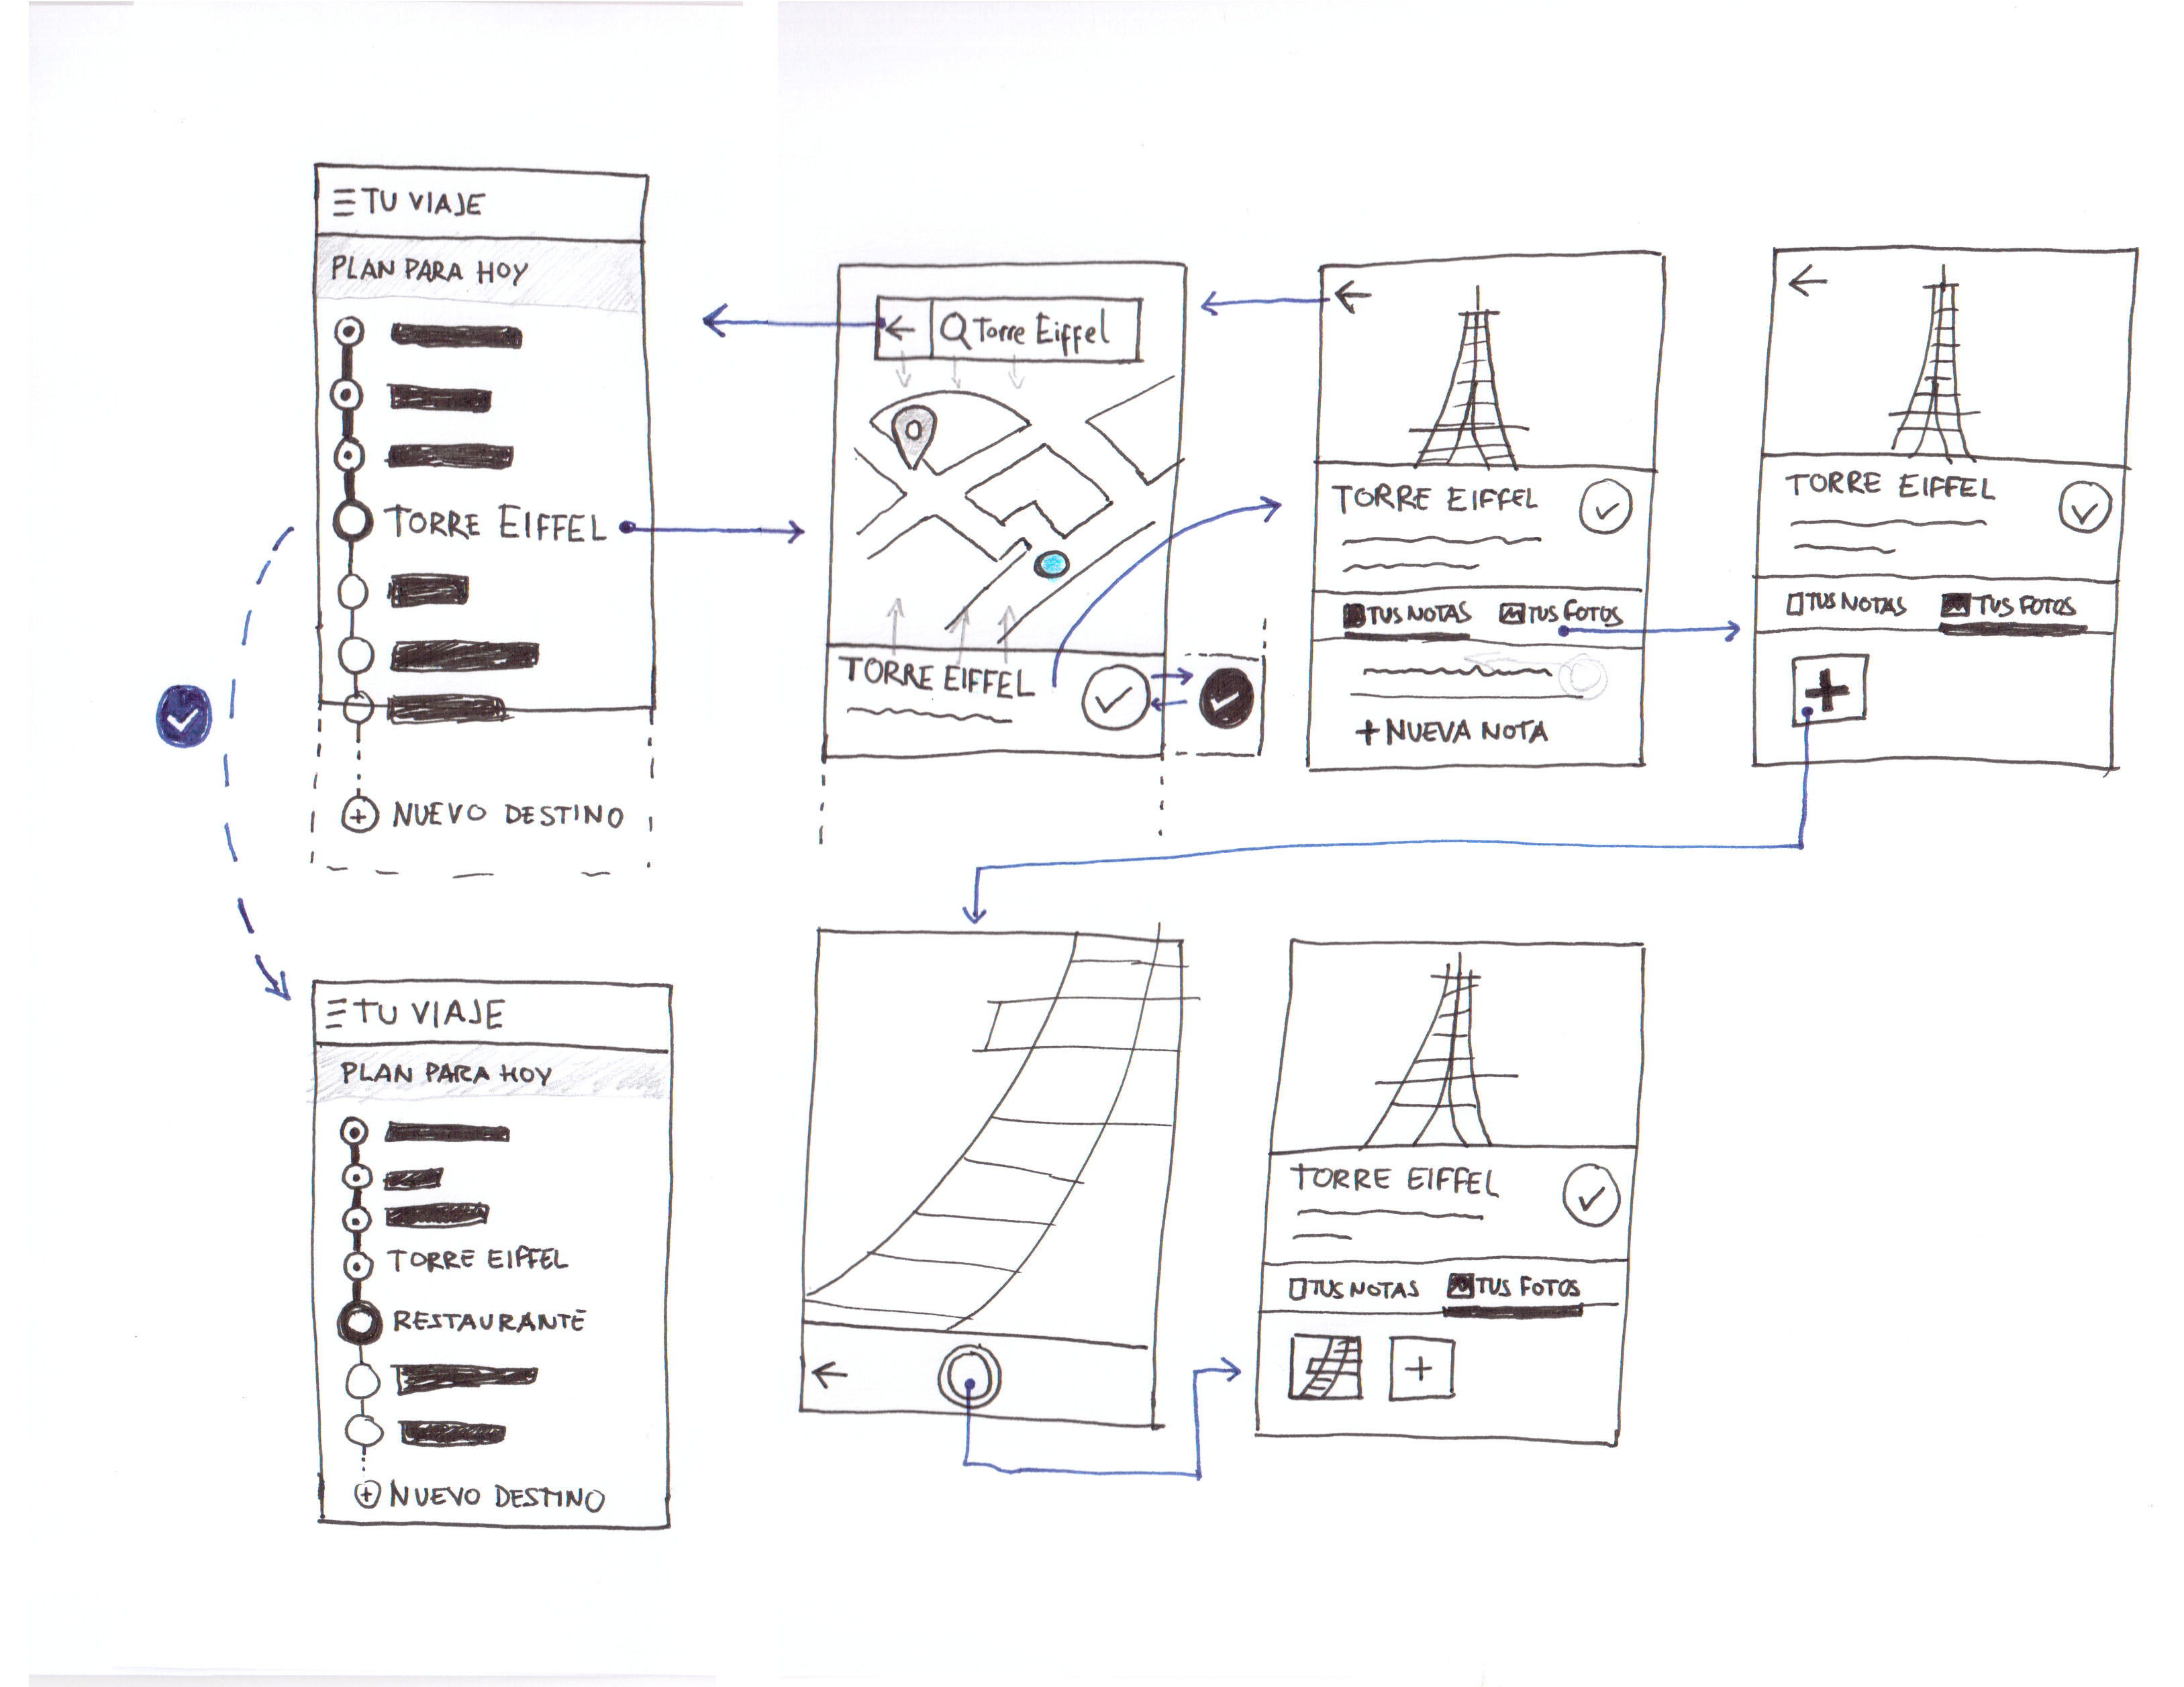 TU VIAJE
PLAN PARA HOY
TORRE EIFFEL
NUEVO DESTINO
Torre Eiffel
TORRE EIFFEL
TORRE EIFFEL
TUS NOTAS TUS FOTOS
+ NUEVA NOTA
TORRE EIFFEL
TUS NOTAS TUS FOTOS
+
TU VIAJE
PLAN PARA HOY
TORRE EIFFEL
RESTAURANTE
NUEVO DESTINO
TORRE EIFFEL
TUS NOTAS TUS FOTOS
+